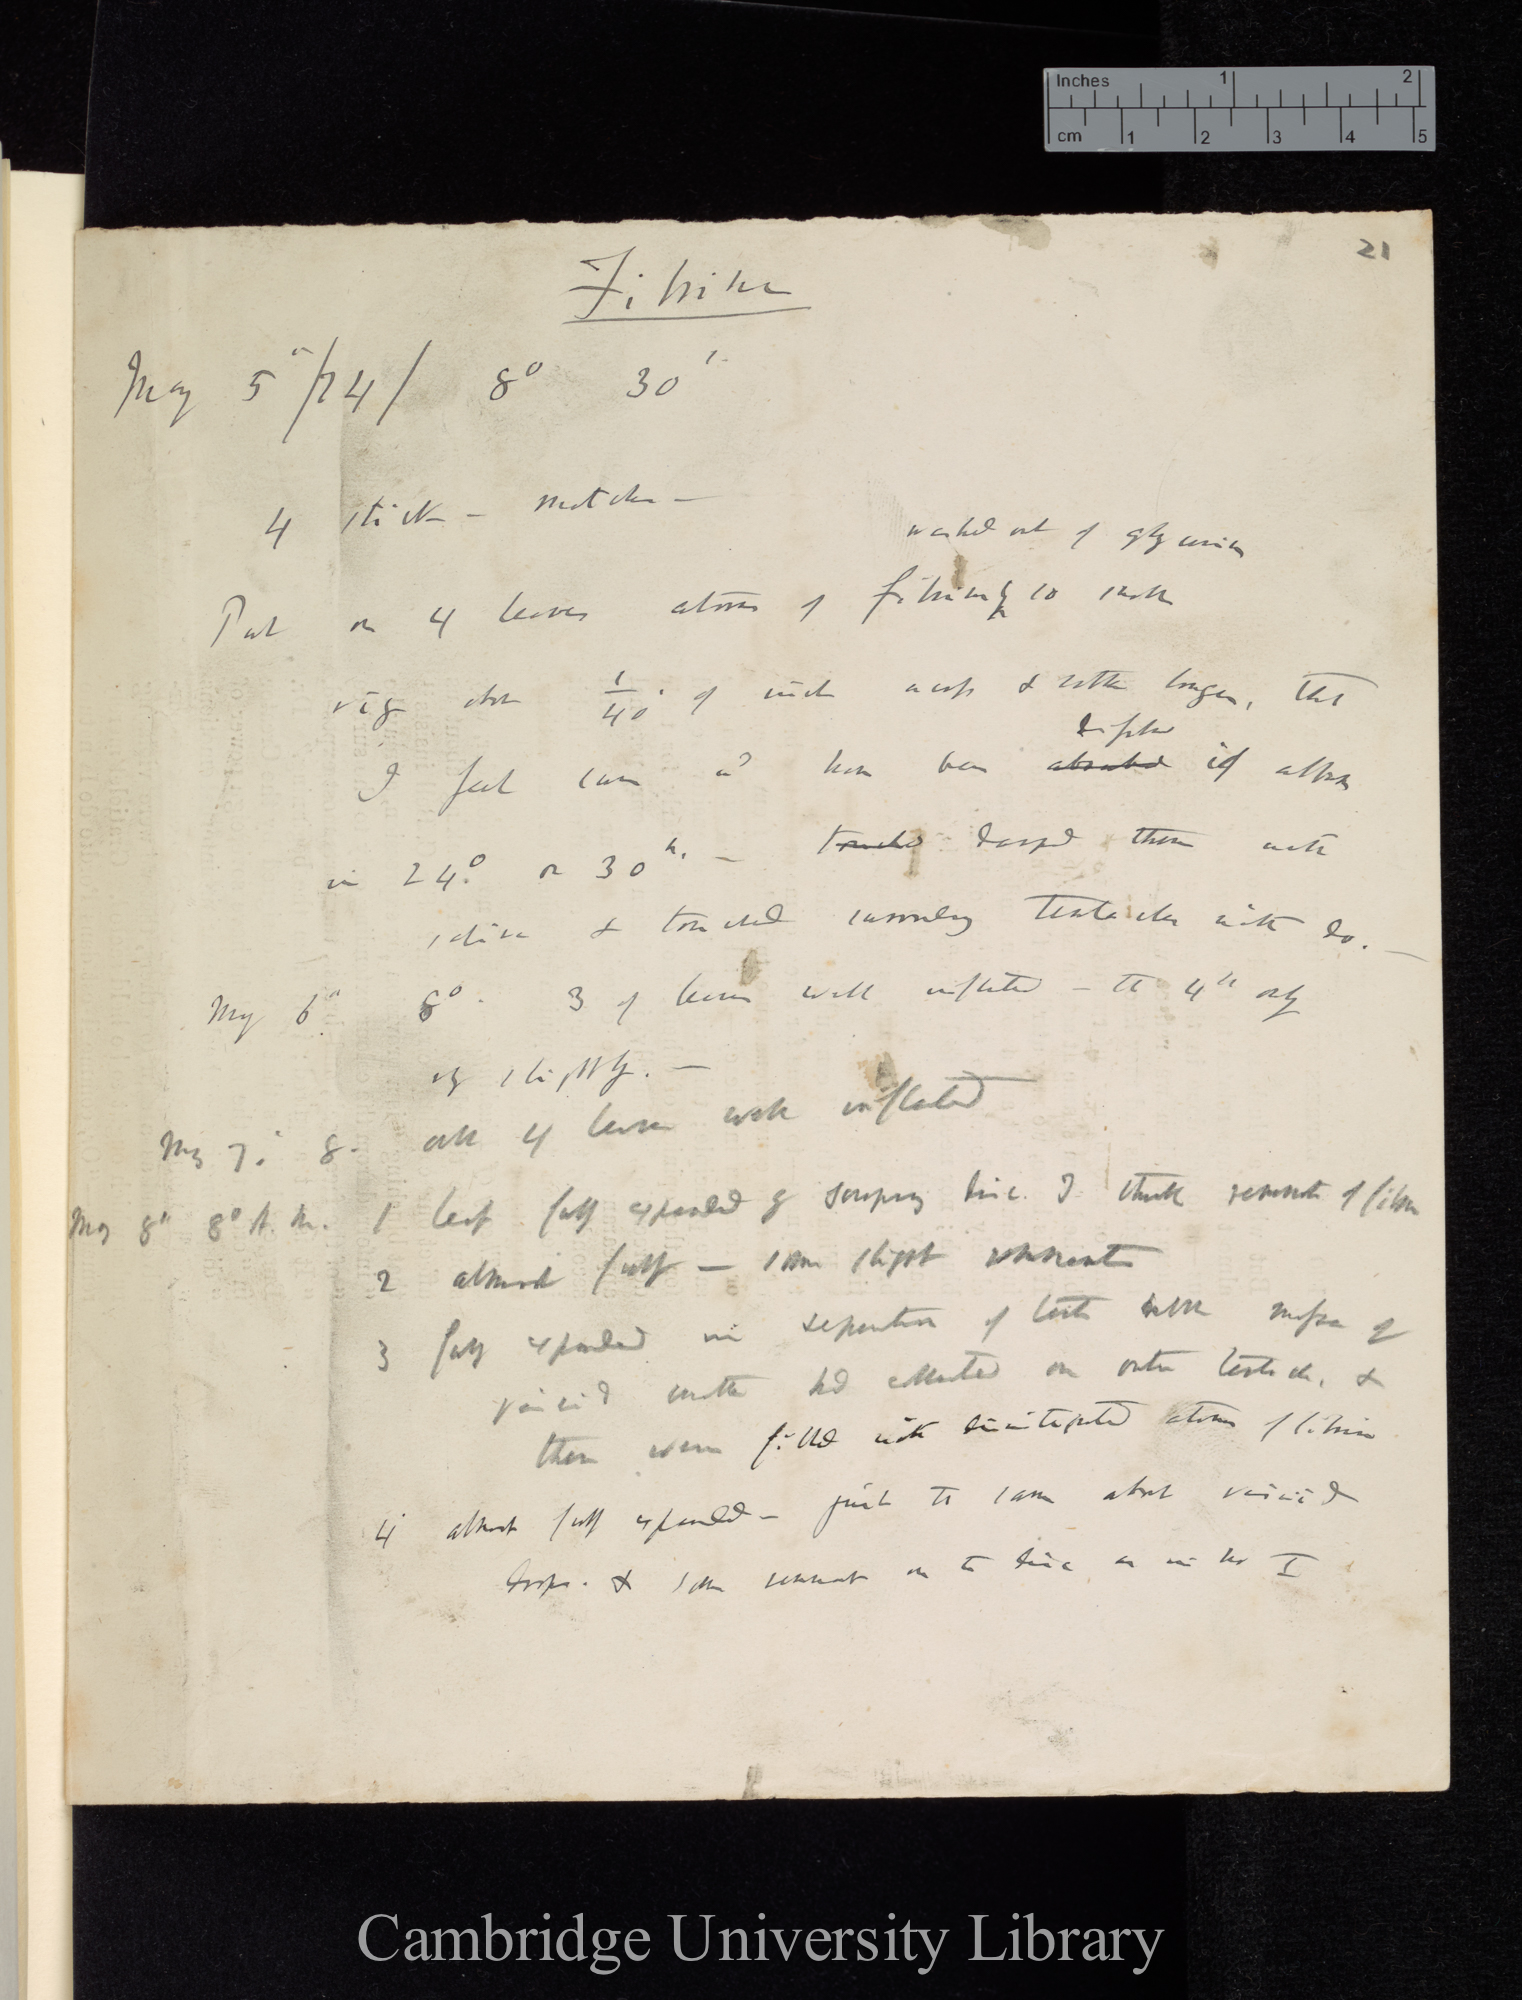 Inches 1 2
cm 1 2 3 4 5
21
Fibrine
May 5th /74/ 8° 30'
4 sticks - matches —
washed out of glycerine
Put on 4 leaves atoms of fibrine so small
viz about 1/40 of inch across & rather longer, that
dissolved
I feel sure wd have been absorbed if albumen
in 24° or 30 h. — touched damped them with
saliva & touched surrounding tentacles with do. —
May 6th 8°. 3 of leaves well inflected — the 4th only
very slightly. —
May 7th 8. all 4 leaves well inflected
May 8th 8° A.M. 1 leaf fully expanded & disc. I think remnant of fibrine
2 almost fully — some slight remnants
3 fully expanded in of little masses of
viscid matter had collected on outer tentacles, &
these were filled with disintegrated atoms of fibrine
4 almost fully expanded — just the same about viscid
drops. & some remnant on the disc as in no I
Cambridge University Library